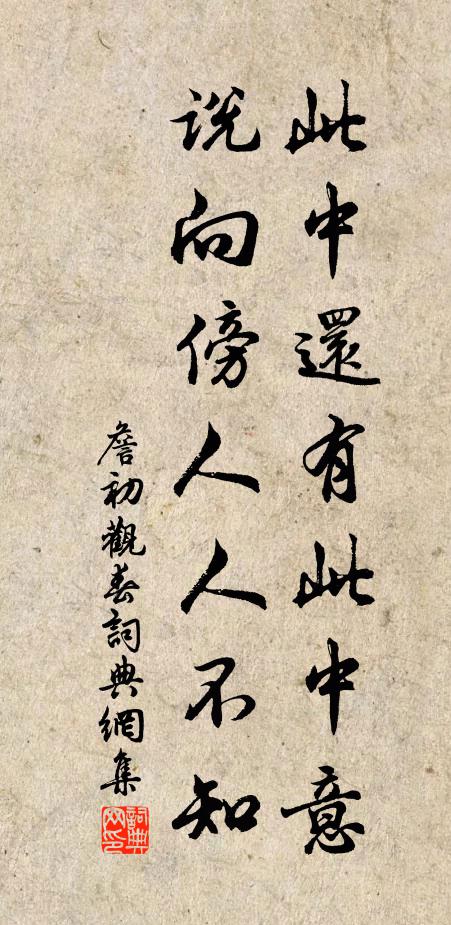 此中還有此中意
說向傍人人不知
詹初觀春詞典網集
詞典
网印